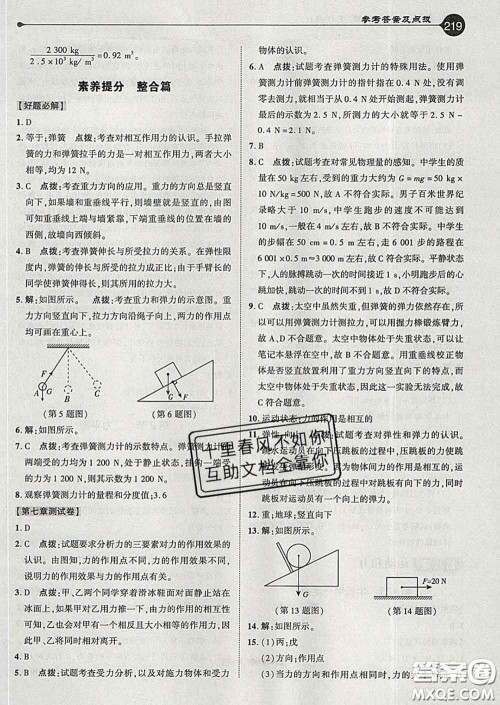 参考答案及点拨 219
2 300 kg
2.5×10³ kg/m³ =0.92 m³。
素养提分 整合篇
【好题必解】
1. D
2. 等于;弹簧 点拨:考查对相互作用力的认识。手拉弹
簧的力和弹簧拉手的力是一对相互作用力,两者大小
相等,均为 12 N。
3. C 点拨:考查重力方向的应用。重力的方向总是竖
直向下,如果墙和重垂线平行,则墙壁就是竖直的,由
图可知重垂线上端与墙紧靠,下端与墙壁有较大的空
隙,故墙向西倾斜。
4. B 点拨:考查弹簧伸长与所受拉力的关系。在弹性限度
内,弹簧的伸长与所受的拉力成正比;由于手臂长的
同学使弹簧伸得长,所以手臂长的同学拉力大。
5. 解:如图所示。 点拨:考查重力和力的示意图。重
力方向竖直向下,拉力方向沿绳子向上,力的作用点
可均画在重心上。
F
G A B C
(第 5 题图)
F
(第 6 题图)
6. 解:如图所示。
7. C 点拨:考查弹簧测力计的示数特点。弹簧测力计
两端受的力均为 1 200 N,处于静止状态,挂钩一端受
力为 1 200 N,故示数为 1 200 N。
8. 观察弹簧测力计的量程和分度值;3.6
【第七章测试卷】
1. D
2. C 点拨:试题要求分析力的三要素对力的作用效果的
认识。由图可知,力的作用点不同,力的方向、大小相
同,因此该现象表明力的作用效果与力的作用点有关。
3. A 点拨:甲、乙两个同学穿着滑冰鞋面对面静止站在
冰面上,如果甲对乙用力推一下,结果是两人向相反方
向运动,表明甲对乙施加力的同时,乙对甲也施加了力,因
此甲、乙同时受到力的作用。
4. B
5. B 点拨:试题考查受力分析,以及对施力物体和受力
物体的认识。
6. A 点拨:试题考查弹簧测力计的特殊用法。使用弹
簧测力计前弹簧测力计的指针指在 0.4 N 处,没有调
零,就相当于从 0.4 N 开始测起,所以,弹簧测力计的
示数为 2.5 N 时,所测力的大小为 2.5 N−0.4 N
=2.1 N。
7. B
8. C 点拨:试题考查对常见物理量的感知。中学生的质
量在 50 kg 左右,受到的重力大约为 G=mg=50 kg×
10 N/kg=500 N,故 A 不符合实际。男子百米世界纪
录略大于 10 m/s,中学生的速度不可能达到
10 m/s,一般在 8 m/s 左右,故 B 不符合实际。中学
生的步幅大约 50 cm=0.5 m,走 6 001 步的路程在
6 001×0.5 m≈3 km 左右,故 C
符合实际。人的脉搏跳动一次的时间接近 1 s,小明跑步后的心
跳比较快,跳动一次的时间小于 1 s,故 D 不符合实际。
9. C 点拨:太空中虽然失重,但弹簧的弹力依然存在,所
以可以利用弹簧测力计测拉力,可以用握力棒锻炼臂力,
故 A、D 不合题意。太空中物体处于失重状态,可以让
笔记本悬浮在空中,故 B 不合题意。用重垂线校正物
体是否竖直放置利用了重力方向竖直向下的特点,而太
空中物体处于失重状态,因此这一实验无法完成,故
C 符合题意。
10. 运动状态;力的作用是相互的
12. 重;地球;竖直向下
13. 解:如图所示。 14. 解:如图所示。
G
(第 13 题图)
F=20 N
(第 14 题图)
15. (1)丙;戊
(2)方向;作用点
十里春风不如你
互助文档全靠你
答案圈
MXQE.COM